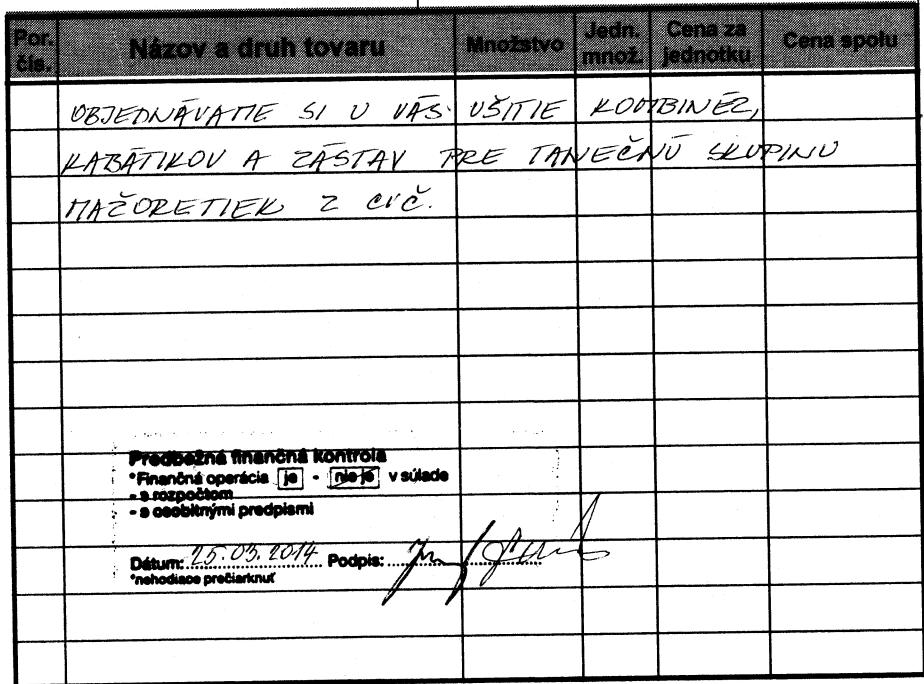 Por. čís. Názov a druh tovaru Množstvo Jedn. množ. Cena za jednotku Cena spolu
OBJEDNÁVAME SI U VÁS UŠITIE KOMBINÉZ,
KABÁTIKOV A ZÁSTAV PRE TANEČNÚ SKUPINU
MAŽORETIEK Z CVČ.
Predbežná finančná kontrola
*Finančná operácia je - nie je v súlade
- s rozpočtom
- s osobitnými predpismi
Dátum: 25.03.2014 Podpis:
*nehodiace prečiarknuť